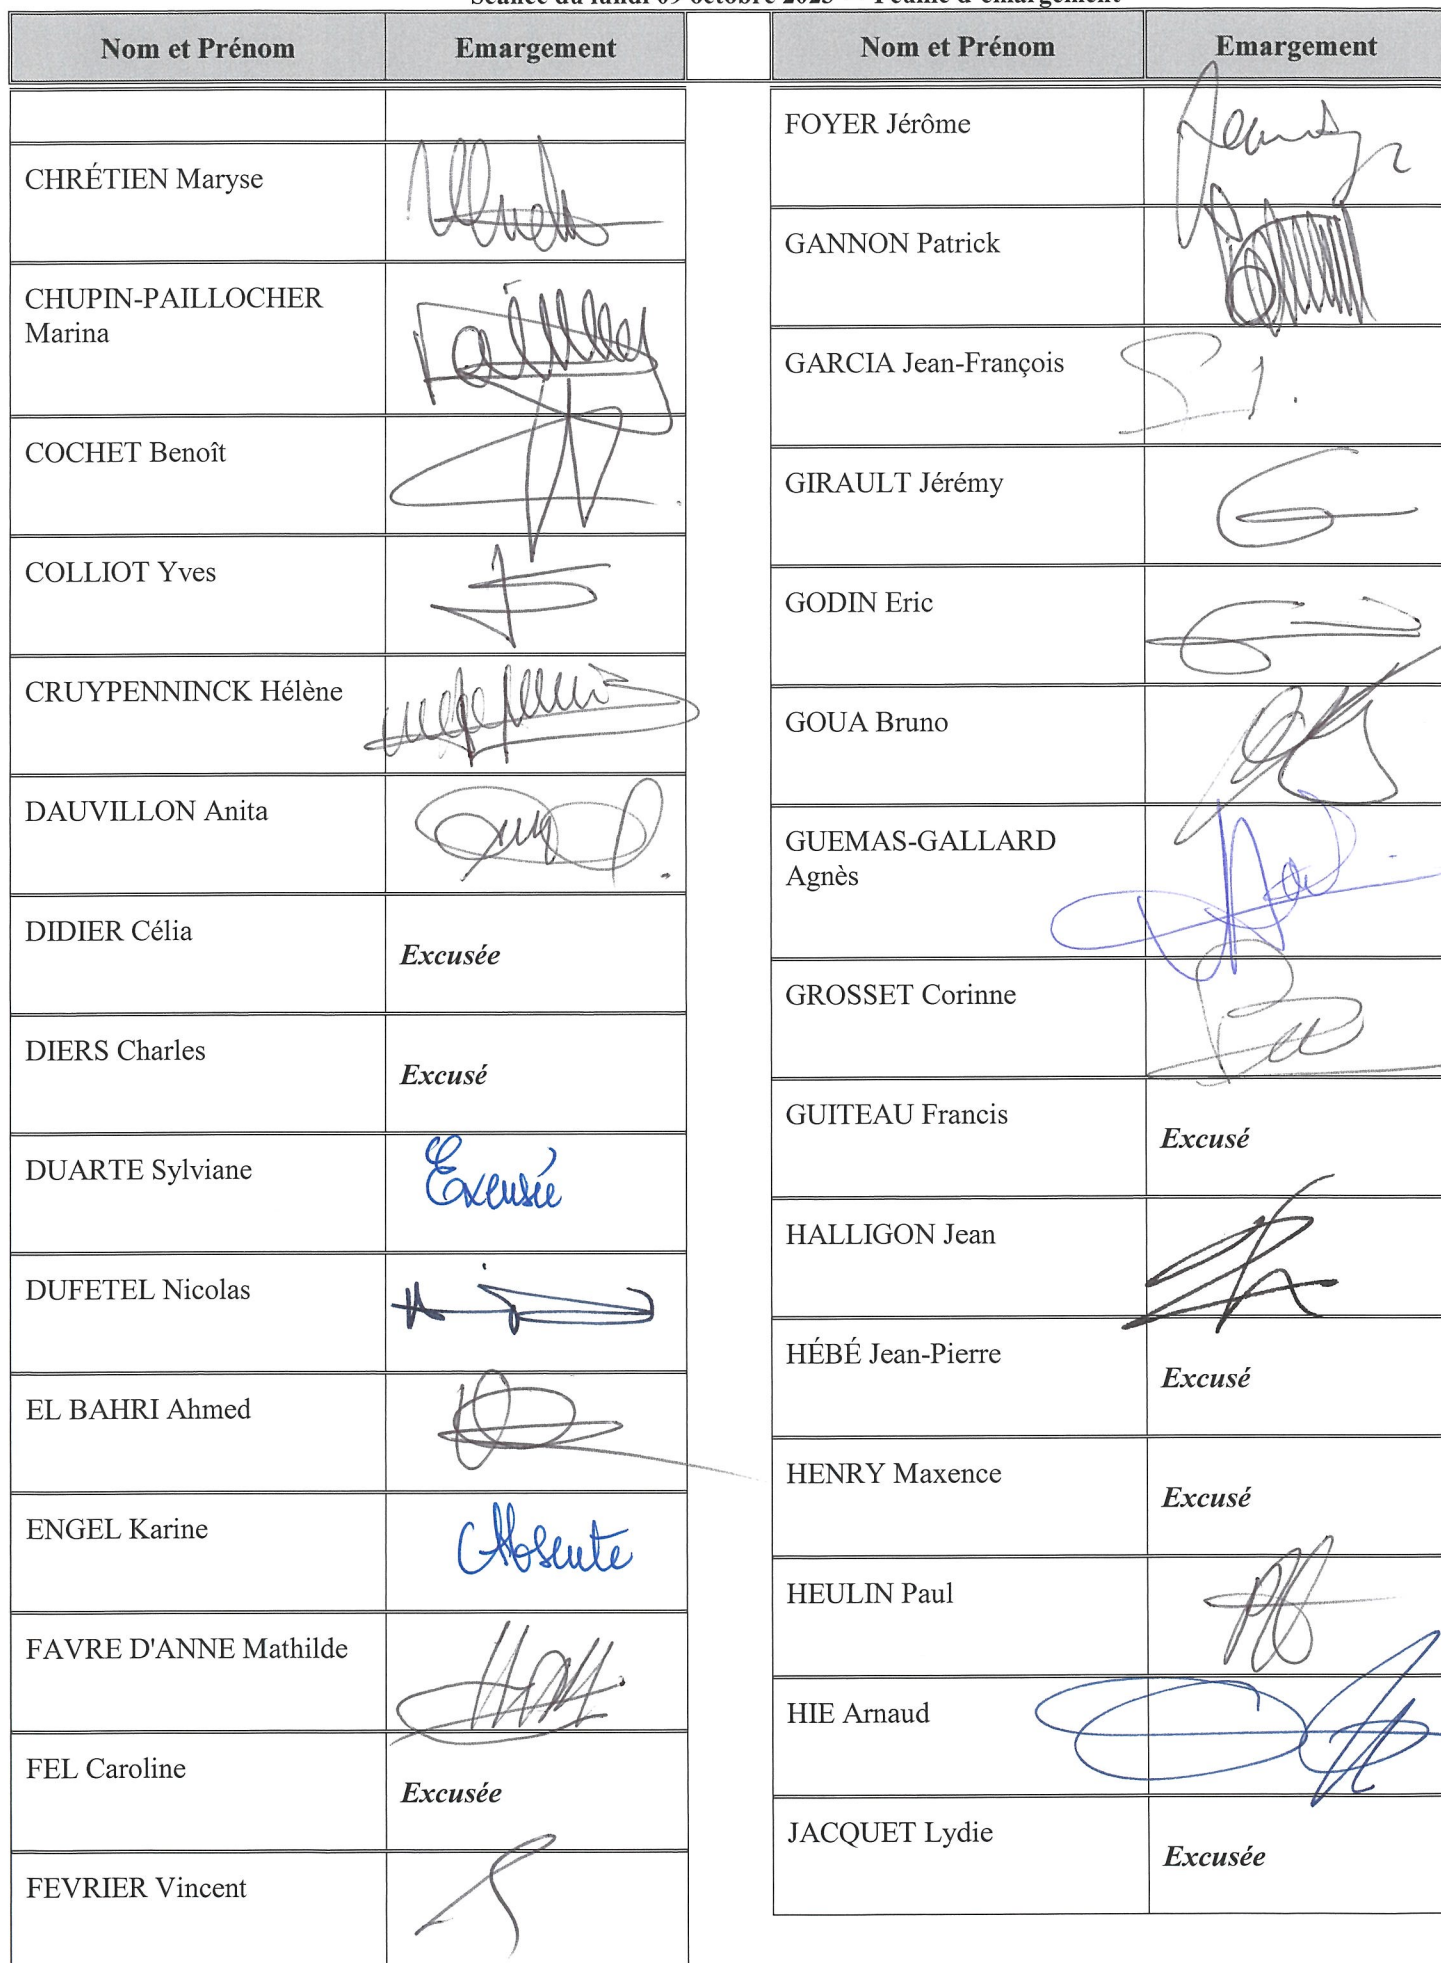 Séance du lundi 09 octobre 2023 - Feuille d'émargement
Nom et Prénom Emargement
CHRÉTIEN Maryse
CHUPIN-PAILLOCHER
Marina
COCHET Benoît
COLLIOT Yves
CRUYPENNINCK Hélène
DAUVILLON Anita
DIDIER Célia
Excusée
DIERS Charles
Excusé
DUARTE Sylviane
Excusée
DUFETEL Nicolas
EL BAHRI Ahmed
ENGEL Karine
Absente
FAVRE D'ANNE Mathilde
FEL Caroline
Excusée
FEVRIER Vincent
Nom et Prénom Emargement
FOYER Jérôme
GANNON Patrick
GARCIA Jean-François
GIRAULT Jérémy
GODIN Eric
GOUA Bruno
GUEMAS-GALLARD
Agnès
GROSSET Corinne
GUITEAU Francis
Excusé
HALLIGON Jean
HÉBÉ Jean-Pierre
Excusé
HENRY Maxence
Excusé
HEULIN Paul
HIE Arnaud
JACQUET Lydie
Excusée